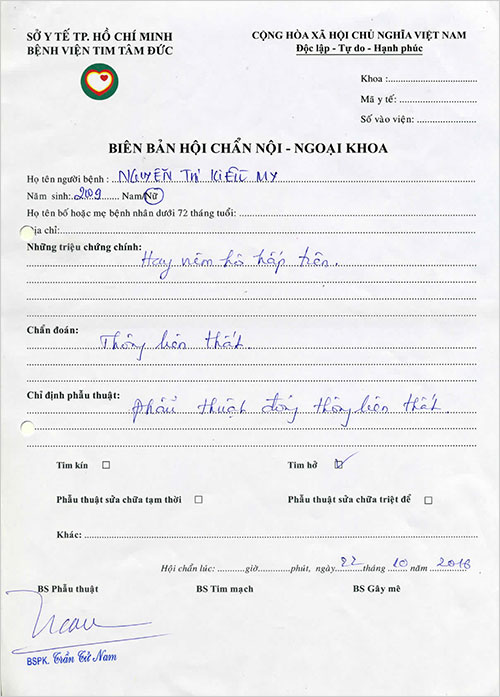 SỞ Y TẾ TP. HỒ CHÍ MINH
BỆNH VIỆN TIM TÂM ĐỨC
CỘNG HÒA XÃ HỘI CHỦ NGHĨA VIỆT NAM
Độc lập - Tự do - Hạnh phúc
Khoa :
Mã y tế:
Số vào viện:
BIÊN BẢN HỘI CHẨN NỘI - NGOẠI KHOA
Họ tên người bệnh : NGUYỄN THỊ KIỀU MY
Năm sinh: 2009 Nam/Nữ
Họ tên bố hoặc mẹ bệnh nhân dưới 72 tháng tuổi:
Địa chỉ:
Những triệu chứng chính:
Hay viêm hô hấp trên.
Chẩn đoán:
Thông liên thất.
Chỉ định phẫu thuật:
Phẫu thuật đóng thông liên thất.
Tim kín
Tim hở
Phẫu thuật sửa chữa tạm thời
Phẫu thuật sửa chữa triệt để
Khác:
Hội chẩn lúc: giờ phút, ngày 22 tháng 10 năm 2016
BS Phẫu thuật
BS Tim mạch
BS Gây mê
BSPK. Trần Tử Nam